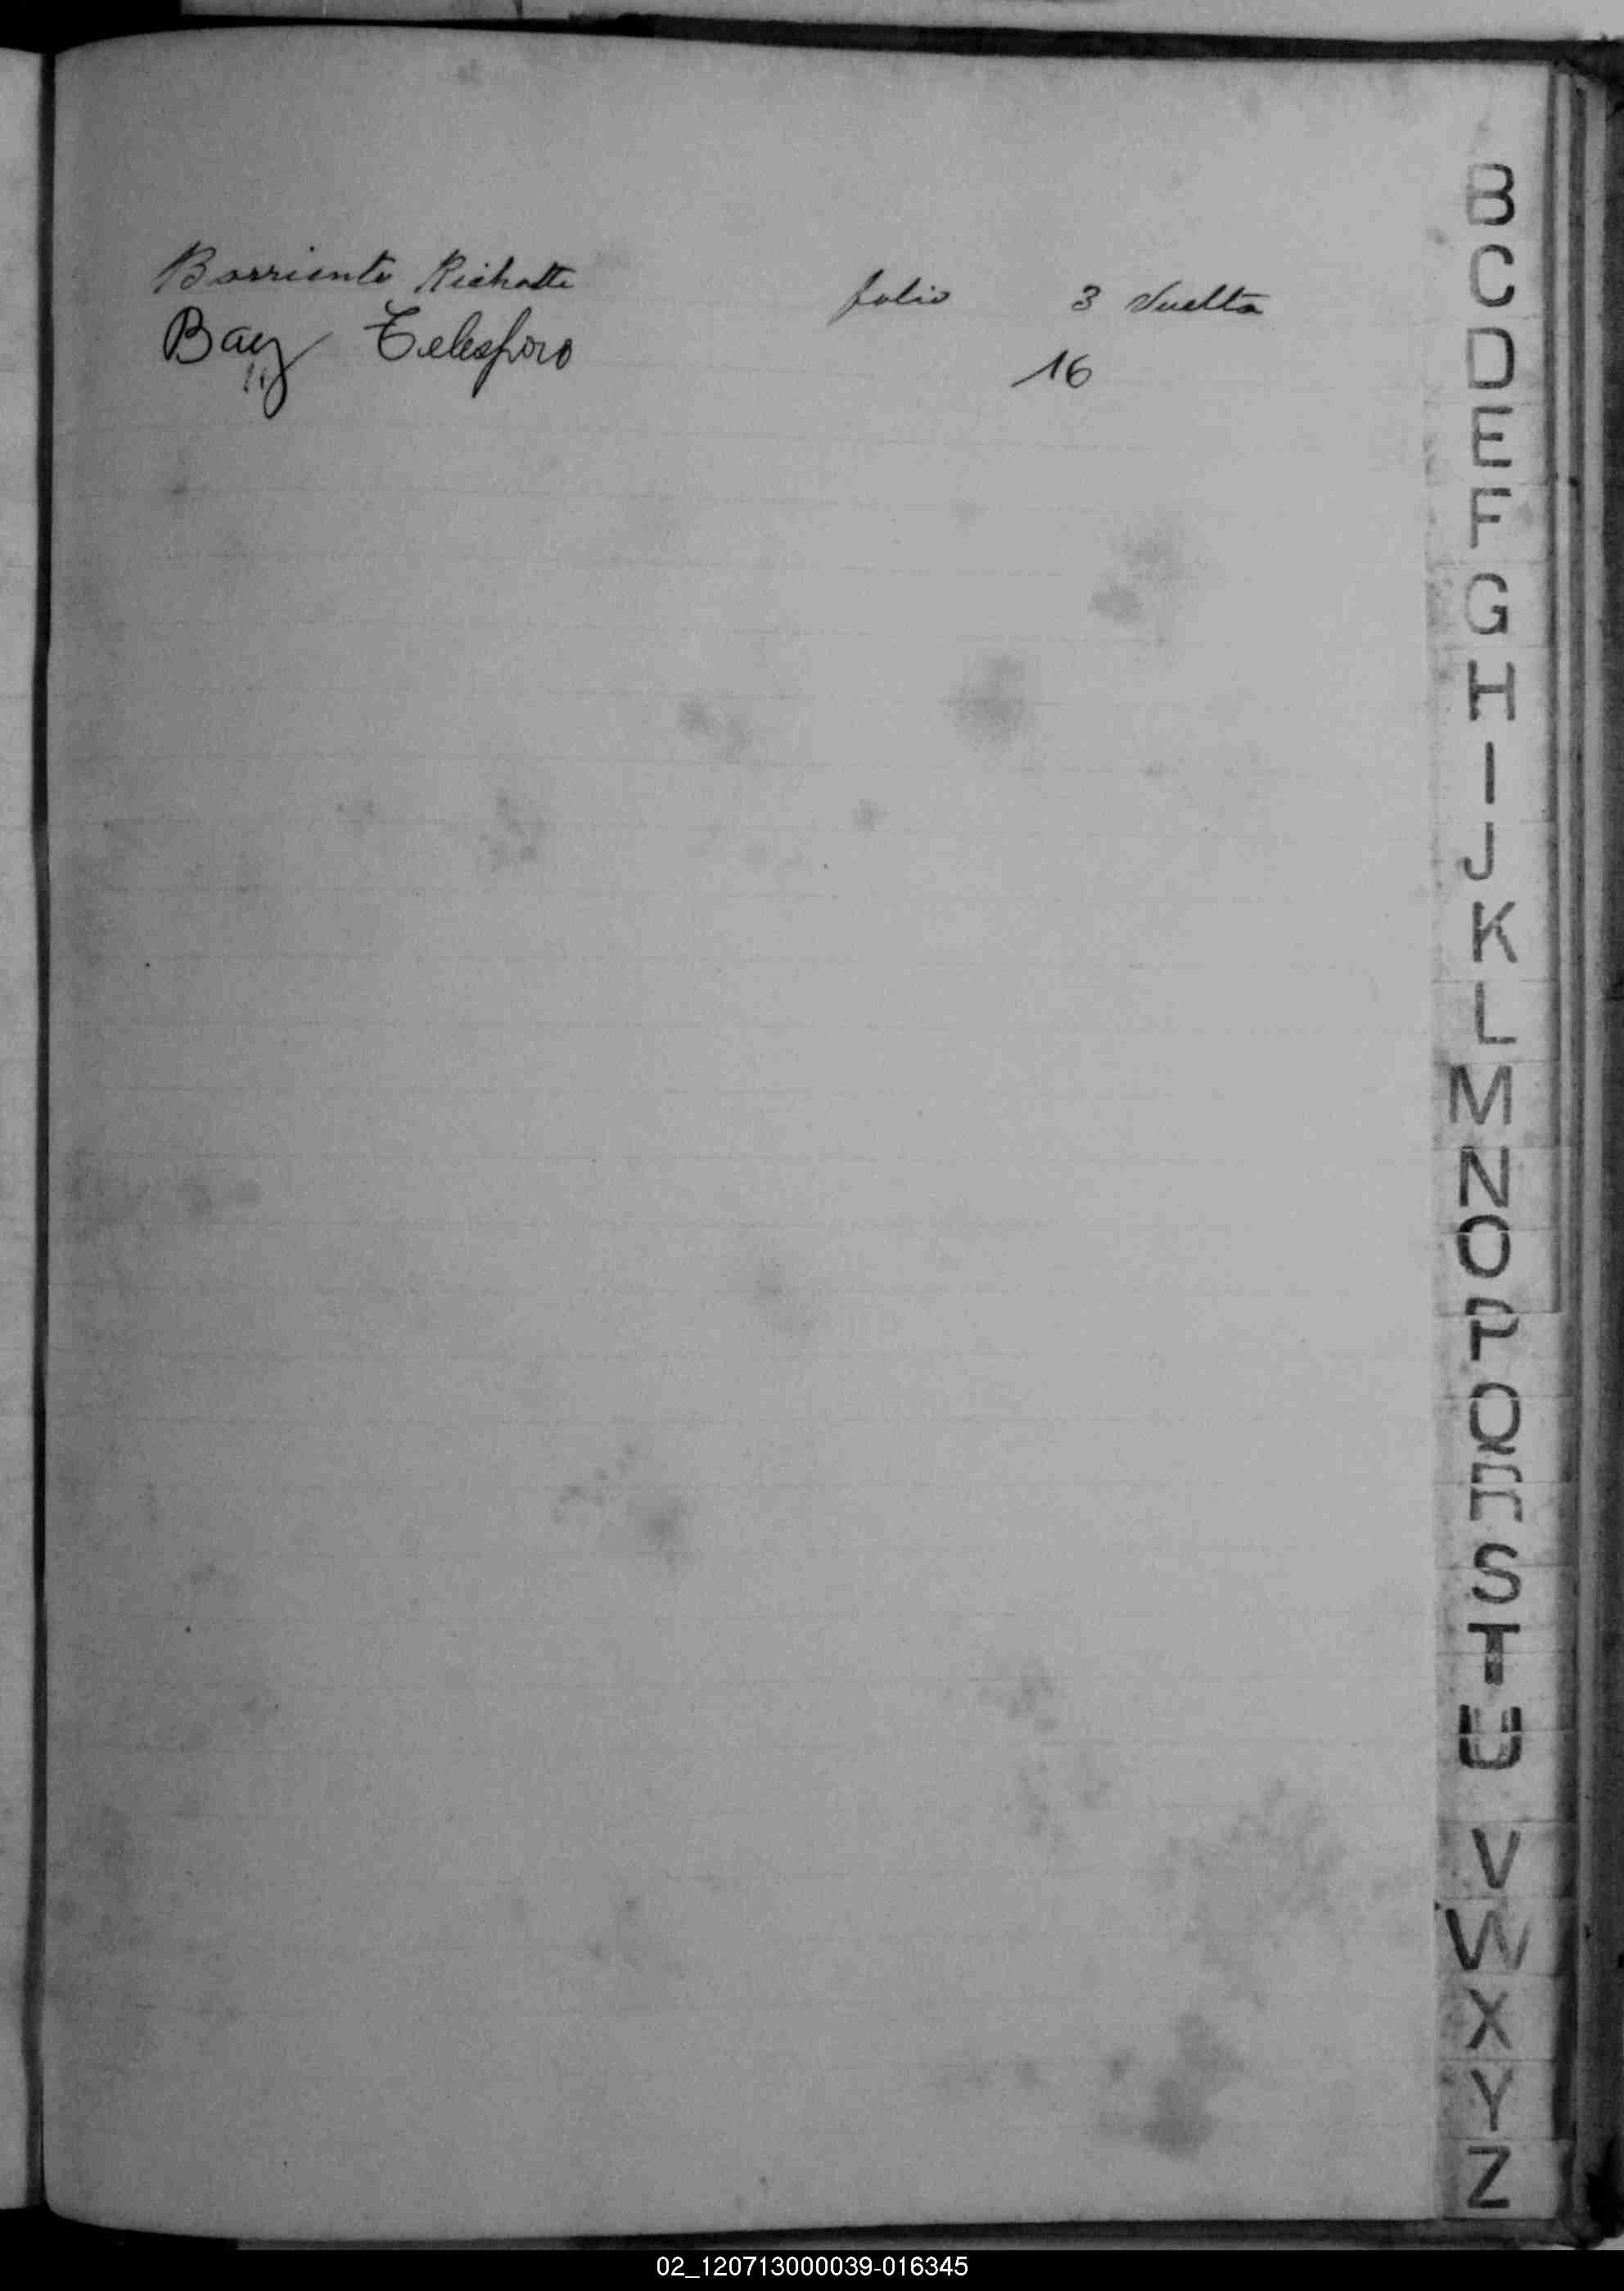 Barriento folio 3 Vuelta
Baez Telesforo 16
B
C
D
E
F
G
H
I
J
K
L
M
N
O
P
Q
R
S
T
U
V
W
X
Y
Z
02_120713000039-016345